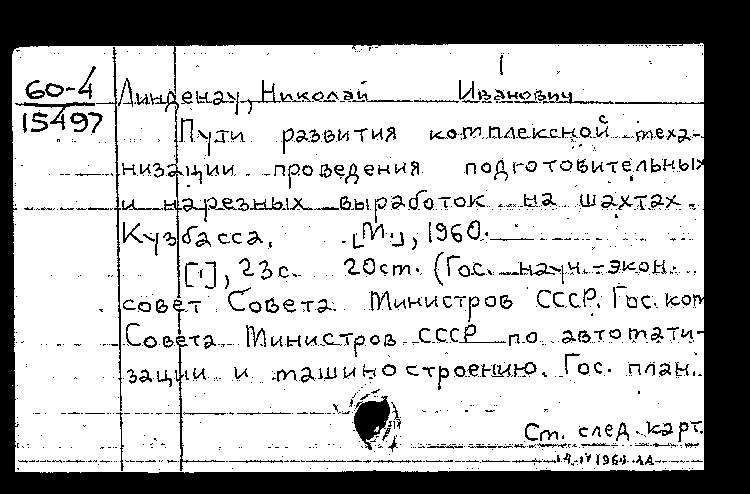 60-4
15497
Линденау, Николай Иванович
Пути развития комплексной меха-
низации проведения подготовительных
и нарезных выработок на шахтах
Кузбасса. [М.], 1960.
[1], 23с. 20ст. (Гос. науч.-экон.
совет Совета Министров СССР. Гос. ком
Совета Министров СССР по автомати-
зации и машиностроению. Гос. план.
Ст. след. карт.